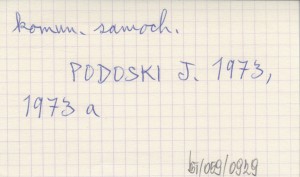 komun. samoch.
PODOSKI J. 1973,
1973 a
51/069/0929